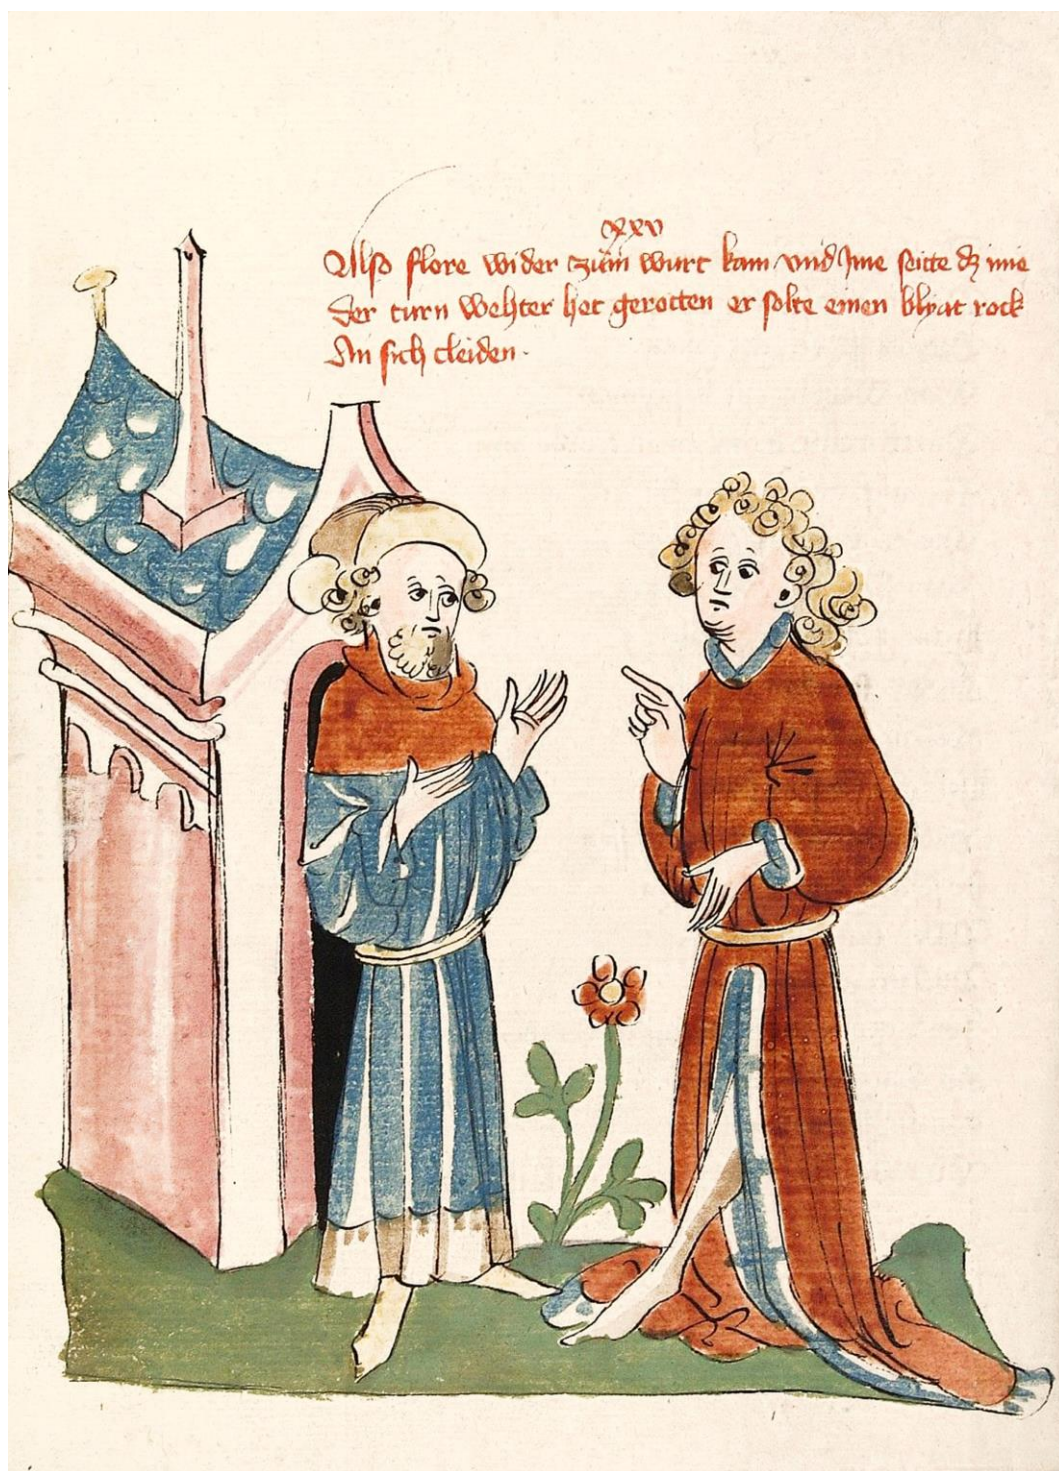 xxv
Also flore wider zům wurt kam vnd Jme seitte dz ime
Der turn wehter het gerotten er solte einen blyat rock
An sich cleiden.